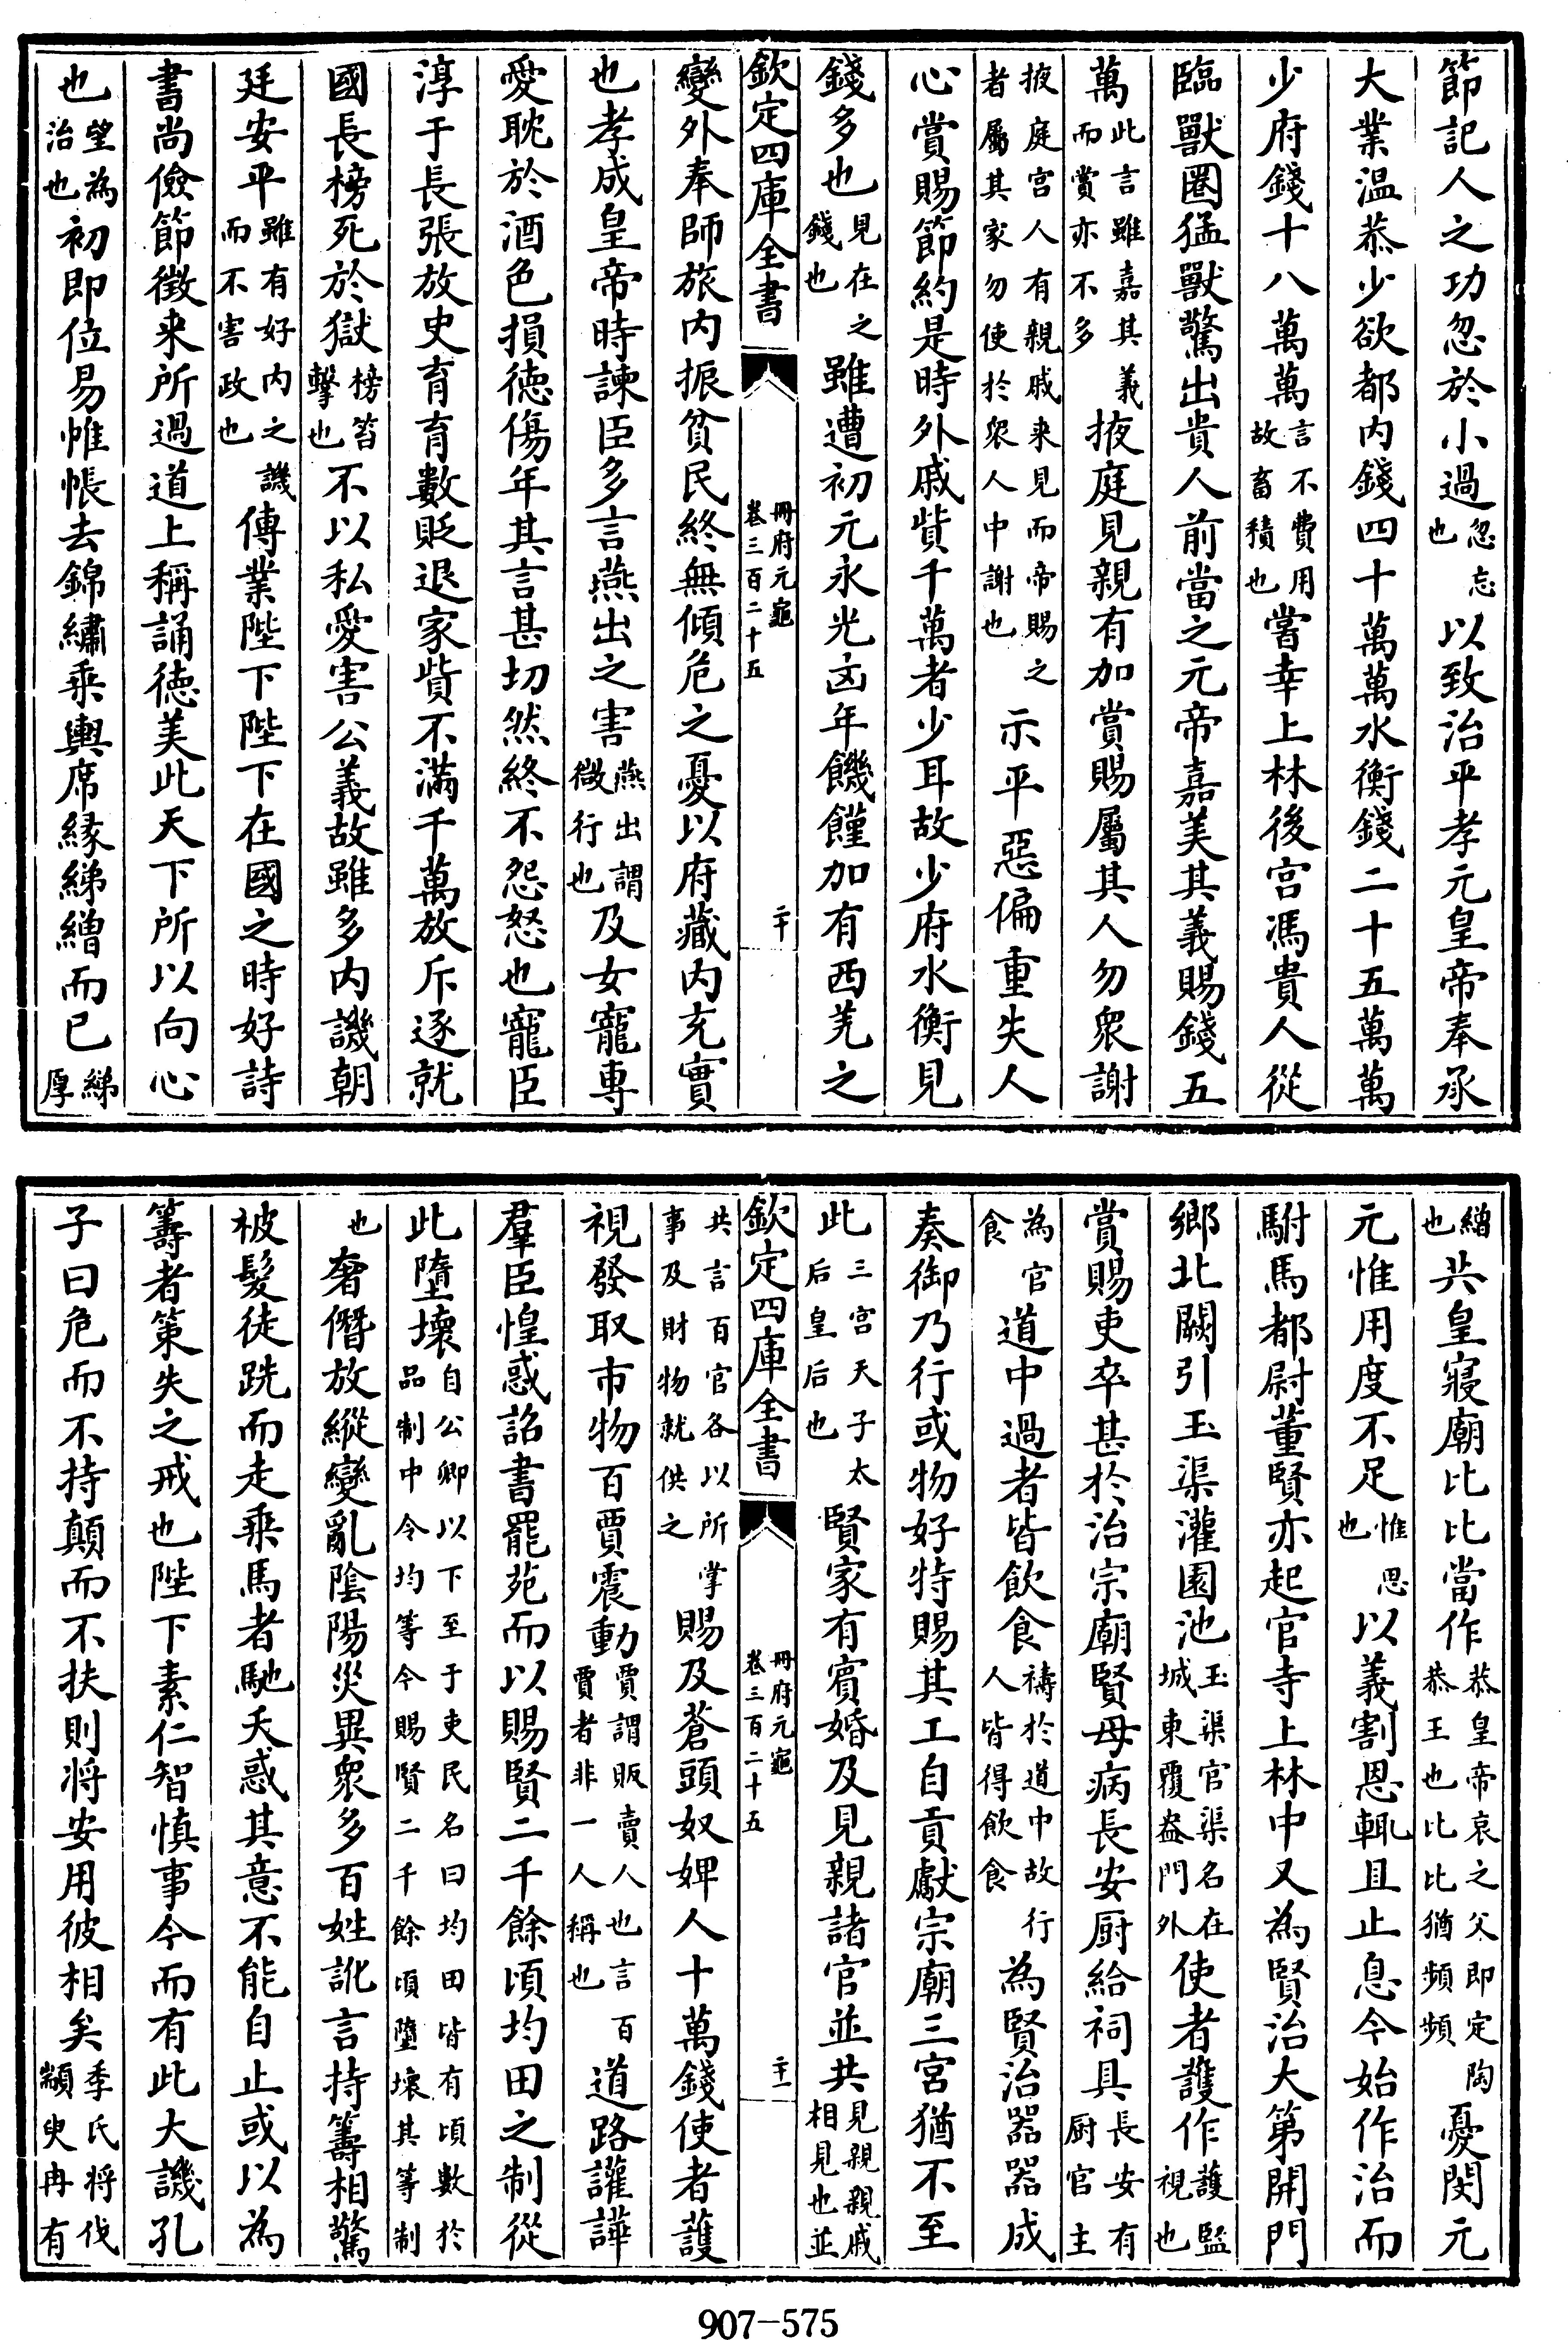 節記人之功忽於小過忽忘也以致治平孝元皇帝奉承
大業温恭少欲都内錢四十萬萬水衡錢二十五萬萬
少府錢十八萬萬言不費用故畜積也嘗幸上林後宫馮貴人從
臨獸圈猛獸驚出貴人前當之元帝嘉美其義賜錢五
萬此言雖嘉其義而賞亦不多掖庭見親有加賞賜屬其人勿衆謝
掖庭宫人有親戚来見而帝賜之者屬其家勿使於衆人中謝也示平惡偏重失人
心賞賜節約是時外戚貲千萬者少耳故少府水衡見
錢多也見在之錢也雖遭初元永光凶年饑饉加有西羌之
欽定四庫全書 冊府元龜卷三百二十五 二十
變外奉師旅内振貧民終無傾危之憂以府藏内充實
也孝成皇帝時諫臣多言燕出之害燕出謂微行也及女寵專
愛耽於酒色損徳傷年其言甚切然終不怨怒也寵臣
淳于長張放史育育數貶退家貲不滿千萬放斥逐就
國長榜死於獄榜笞擊也不以私愛害公義故雖多内譏朝
廷安平雖有好内之譏而不害政也傳業陛下陛下在國之時好詩
書尚儉節徵来所過道上稱誦徳美此天下所以向心
也望為治也初即位易帷帳去錦繡乗輿席縁綈繒而已綈厚
繒也共皇寢廟比比當作恭皇帝哀之父即定陶恭王也比比猶頻頻憂閔元
元惟用度不足惟思也以義割恩輒且止息今始作治而
駙馬都尉董賢亦起官寺上林中又為賢治大第開門
鄉北闕引玉渠灌園池玉渠官渠名在城東覆盎門外使者護作護監視也
賞賜吏卒甚於治宗廟賢母病長安厨給祠具長安有厨官主
為官食道中過者皆飲食禱於道中故行人皆得飲食為賢治器器成
奏御乃行或物好特賜其工自貢獻宗廟三宮猶不至
此三宫天子太后皇后也賢家有賓婚及見親諸官並共見親親戚相見也並
欽定四庫全書 冊府元龜卷三百二十五 二十一
共言百官各以所掌事及財物就供之賜及蒼頭奴婢人十萬錢使者護
視發取市物百賈震動賈謂販賣人也言百賈者非一人稱也道路讙譁
羣臣惶惑詔書罷苑而以賜賢二千餘頃均田之制從
此墮壞自公卿以下至于吏民名曰均田皆有頃數於品制中令均等今賜賢二千餘頃墮壞其等制
也奢僭放縱變亂隂陽災異衆多百姓訛言持籌相驚
被髮徒跣而走乗馬者馳天惑其意不能自止或以為
籌者策失之戒也陛下素仁智慎事今而有此大譏孔
子曰危而不持顛而不扶則将安用彼相矣季氏将伐顓臾冉有
907-575